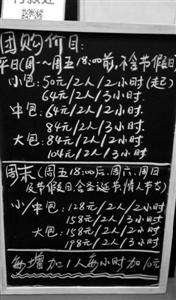 团购价目:
平日(周一~周五18:00前,不含节假日)
小包: 50元/2人/2小时(起)
64元/2人/3小时.
中包: 64元/2人/2小时.
84元/2人/3小时
大包: 84元/2人/2小时
104元/2人/3小时.
周末(周五18:00后,周六、周日
及节假日,含圣诞节/情人节)
小/中包: 128元/2人/2小时
158元/2人/3小时.
大包: 158元/2人/2小时
178元/2人/3小时
每增加1人每小时加10元